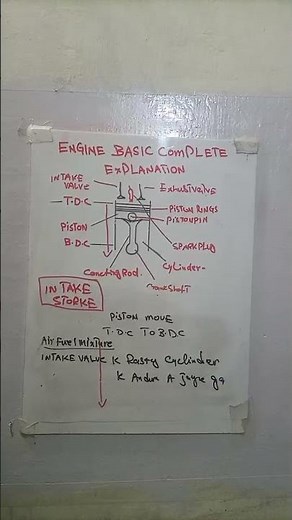 ENGINE BASIC COMPLETE
EXPLANATION
INTAKE
VALVE
Exhusivalve
T.D.C
PISTON RINGS
PISTON PIN
PISTON
B.D.C
SPARK PLUG
Cylinder
Conecting Rod.
IN TAKE
STORKE
PISTON MOVE
T.D.C TO B.D.C
Air Fuel Mixture
INTAKE VALVE K Rasty Cyclinder
K Andur A Jaye ga